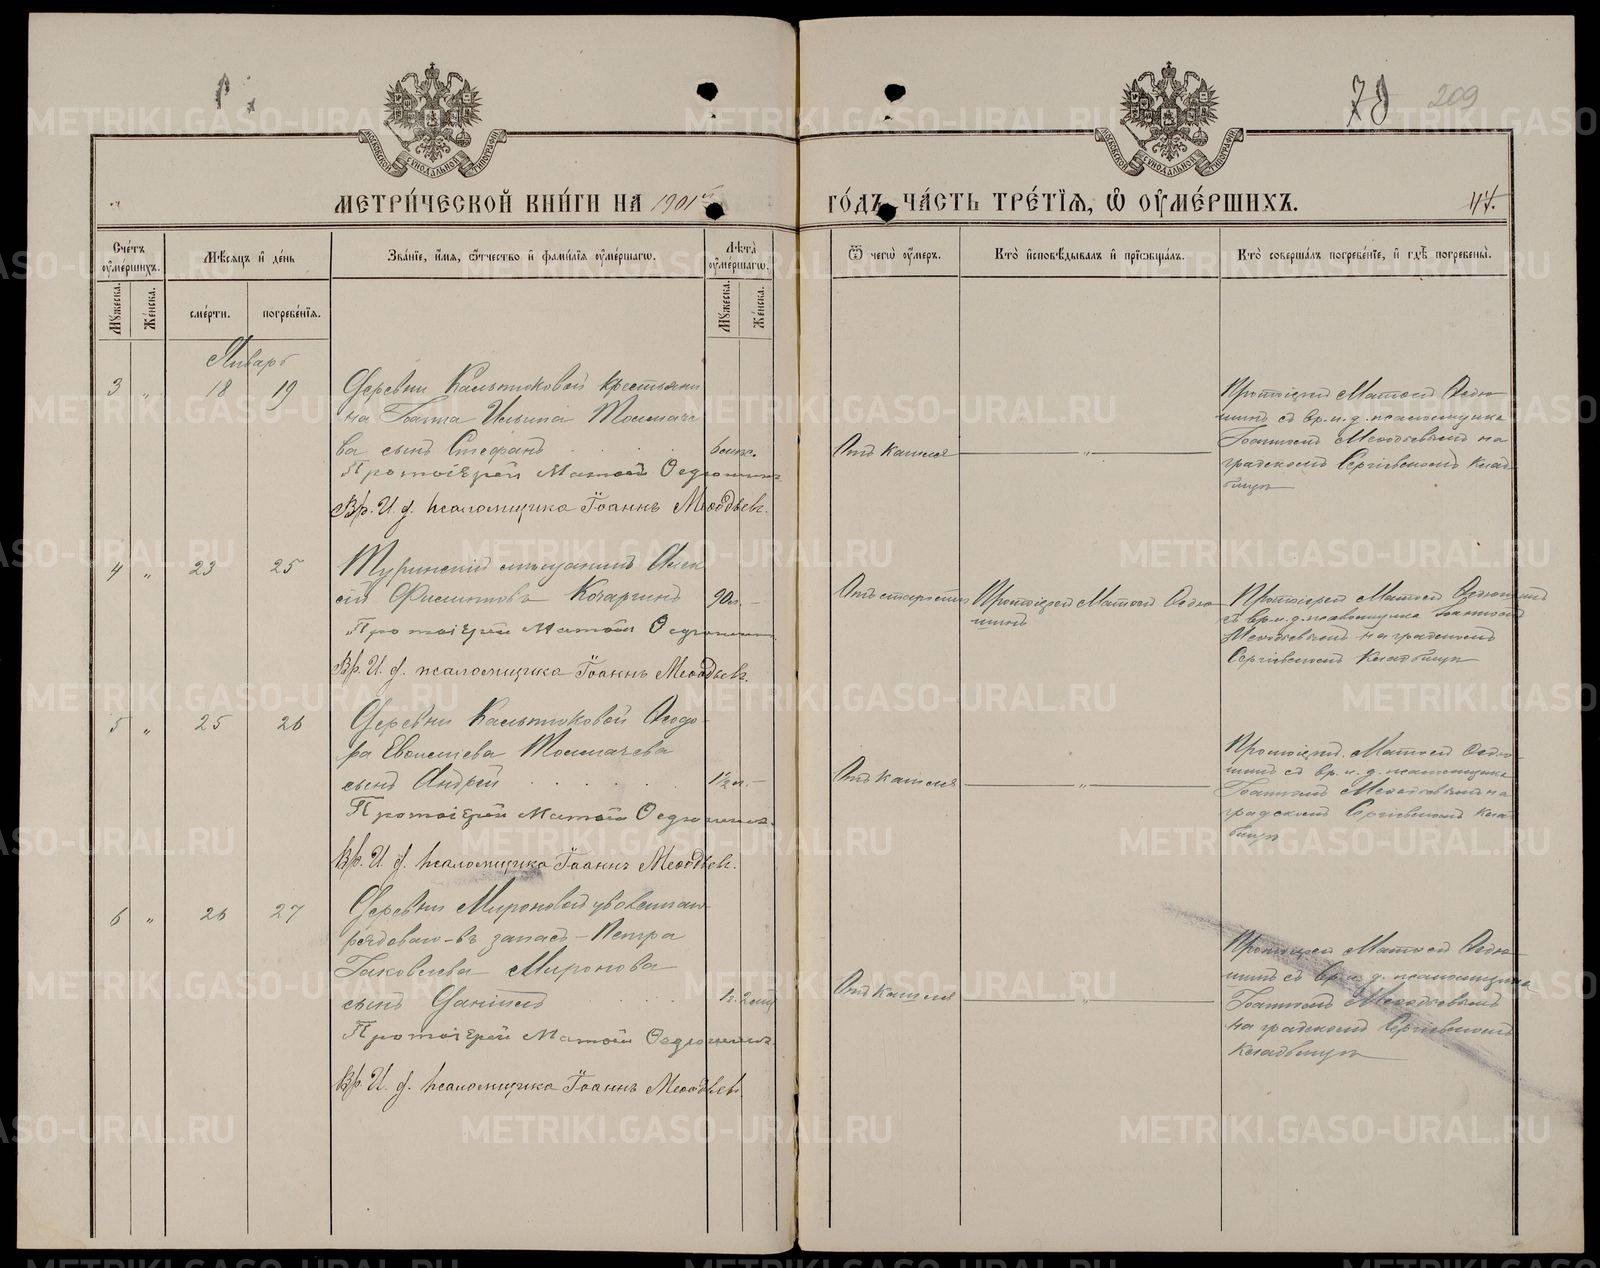 209
МЕТРИ́ЧЕСКОЙ КНИ́ГИ НА 1901й
ГО́ДЪ ЧА́СТЬ ТРЕ́ТІѦ, Ѿ ОУ҆МЕ́РШИХЪ.
44.
Сче́тъ оу҆ме́ршихъ.
Мꙋжеска.
Же́нска.
Мѣсѧцъ и҆ де́нь
сме́рти.
погребе́нїѧ.
Зва́нїе, и҆́мѧ, ѻ҆́тчество и҆ фами́лїѧ оу҆ме́ршагѡ.
Лѣ́та оу҆ме́ршагѡ.
Мꙋжеска.
Же́нска.
Ѿ чегѡ̀ оу҆́меръ.
Кто̀ и҆сповѣ́дывалъ и҆ прїѡбща́лъ.
Кто̀ соверша́лъ погребе́нїе, и҆ гдѣ̀ погребены̀.
Январь
3 " 18 19
Деревни Калтюковой крестьяни
на Іоанна Ильина Толмаче
ва сынъ Стефанъ
Протоіерей Матѳей Ѳедюшинъ
Вр. И. д. псаломщика Іоаннъ Меѳодьевъ.
Отъ кашля
"
Протоіерей Матѳей Ѳедю
шинъ съ вр. и. д. псаломщика
Іоанномъ Меѳодьевымъ на
градскомъ Сергіевскомъ клад
бищѣ
4 " 23 25
Туринскій мѣщанинъ Алек
сій Филиповъ Кочаргинъ
90 л. -
Протоіерей Матѳей Ѳедюшинъ
Вр. И. д. псаломщика Іоаннъ Меѳодьевъ.
Отъ старости
Протоіерей Матѳей Ѳедю
шинъ
Протоіерей Матѳей Ѳедюшинъ
съ вр. и. д. псаломщика Іоанномъ
Меѳодьевымъ на градскомъ
Сергіевскомъ кладбищѣ
5 " 25 26
Деревни Калтюковой Ѳеодо-
ра Евсиевева Толмачева
сынъ Андрей
1½ л. -
Протоіерей Матѳей Ѳедюшинъ.
Вр. И. д. псаломщика Іоаннъ Меѳодьевъ.
Отъ кашля
"
Протоіерей Матѳей Ѳедю
шинъ съ вр. и. д. псаломщика
Іоанномъ Меѳодьевымъ на
градскомъ Сергіевскомъ клад
бищѣ
6 " 26 27
Деревни Мироновой уволеннаго
рядоваго въ запасъ - Петра
Іаковлева Миронова
сынъ Даніилъ
Протоіерей Матѳей Ѳедюшинъ.
Вр. И. д. псаломщика Іоаннъ Меѳодьевъ.
Отъ кашля
"
Протоіерей Матѳей Ѳедю
шинъ съ вр. и. д. псаломщика
Іоанномъ Меѳодьевымъ
на градскомъ Сергіевскомъ
кладбищѣ
METRIKI.GASO-URAL.RU